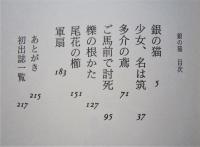 銀の猫 目次
銀の猫 5
少女、名は筑 37
多介の鳶 71
ご馬前で討死 95
櫟の根かた 127
尾花の櫛 151
軍扇 183
あとがき 215
初出誌一覧 217